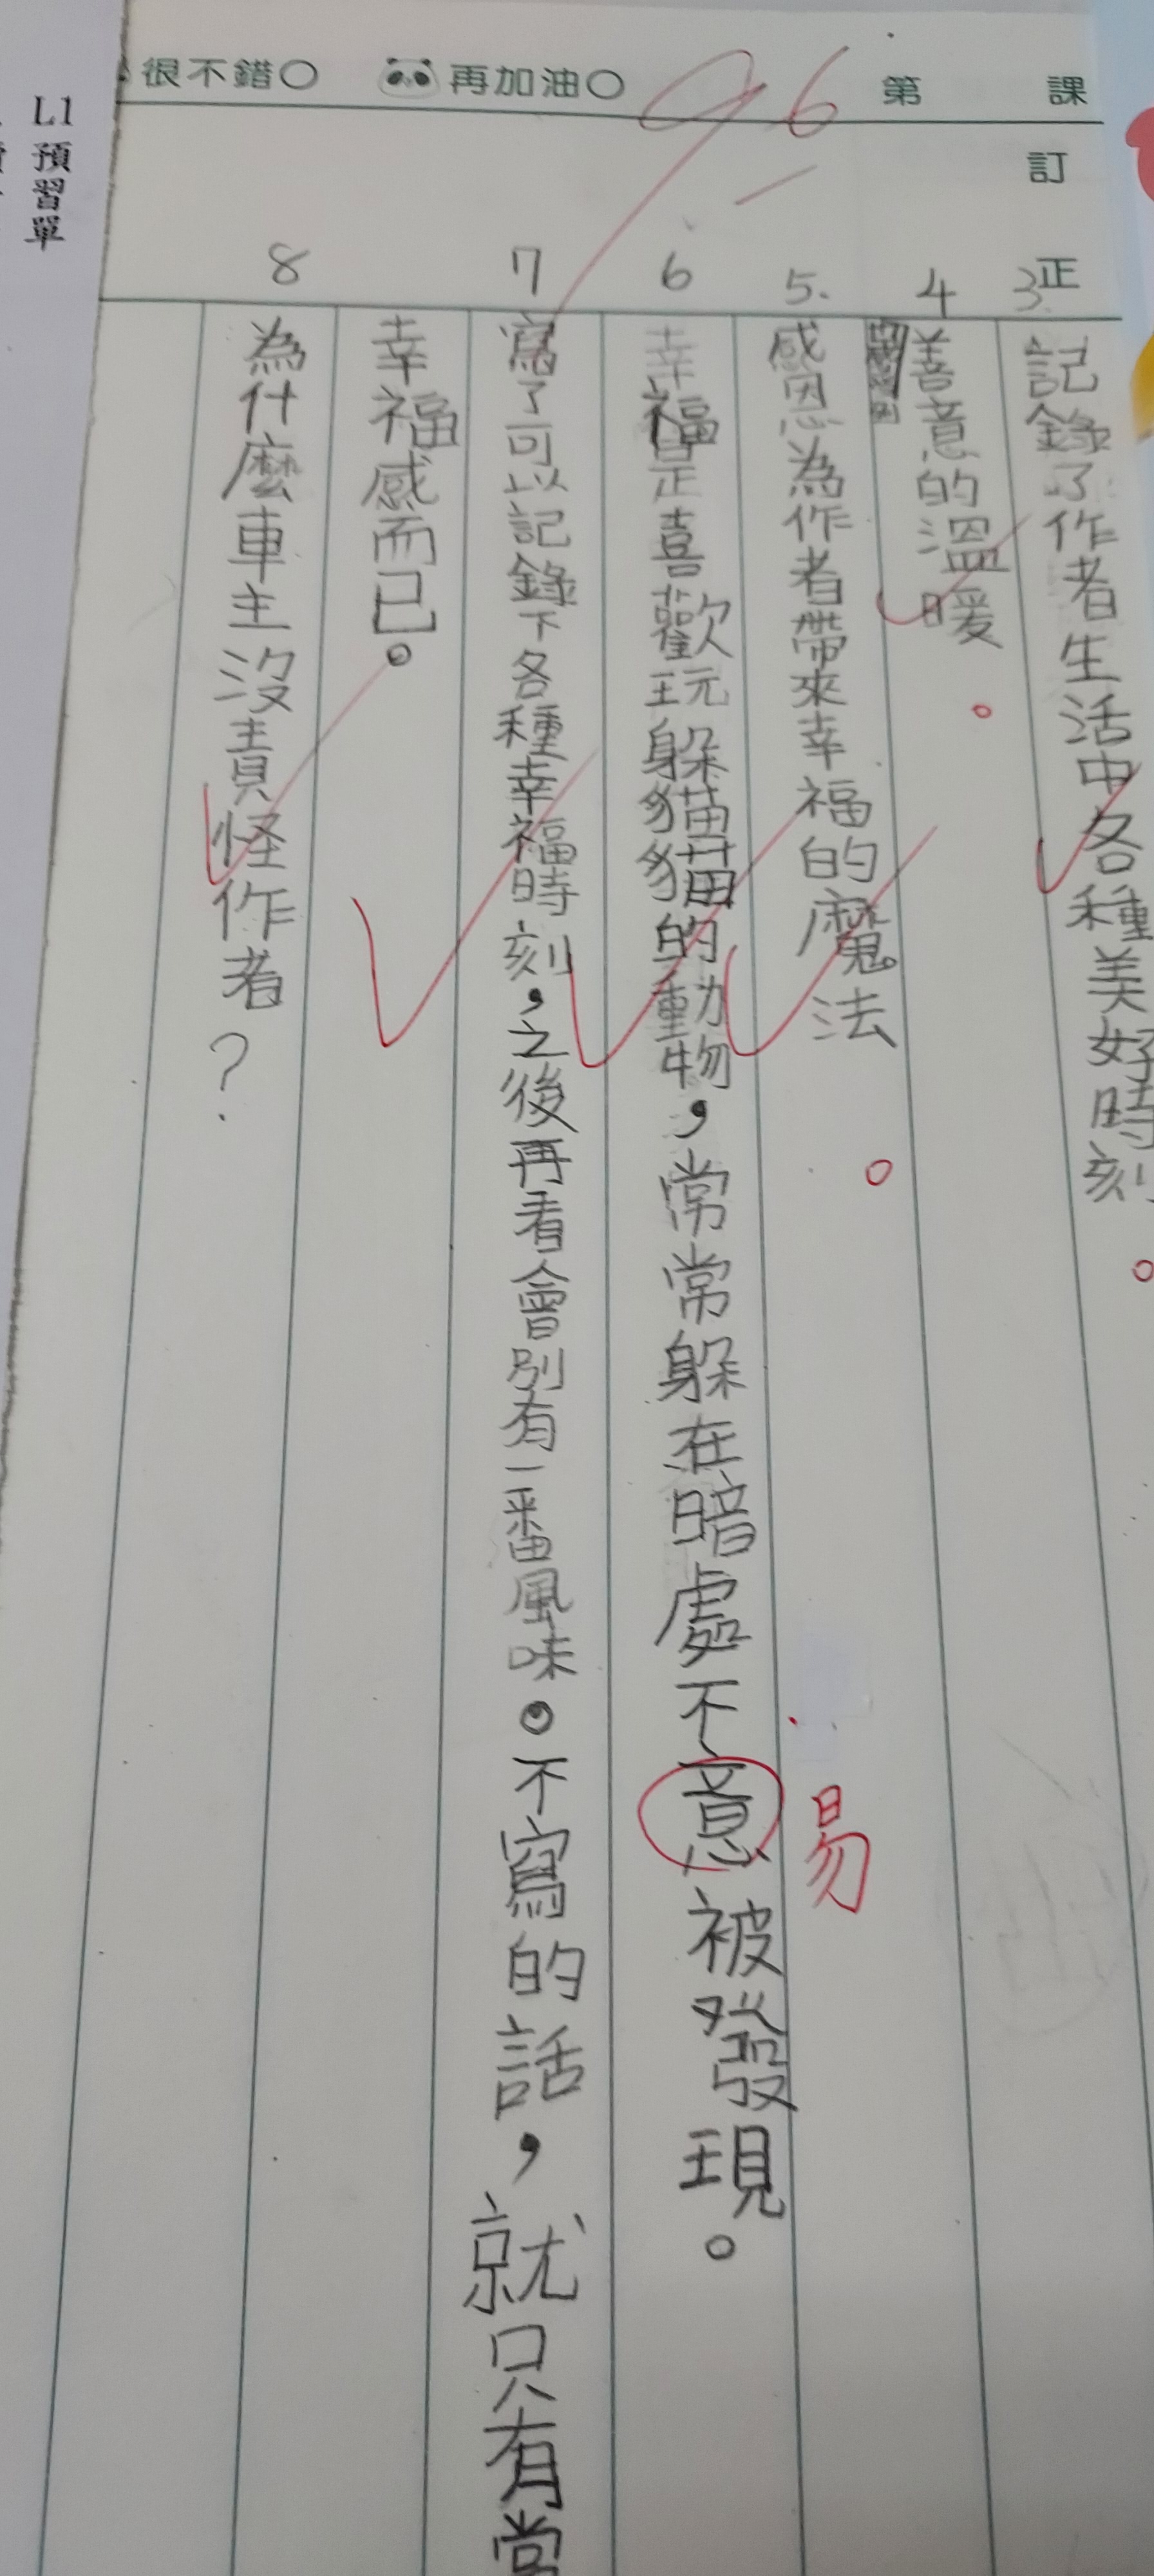 很不錯○ 再加油○ 96 第 課
訂正
L1預習單
3. 記錄了作者生活中各種美好時刻。
4 善意的溫暖。
5. 感恩為作者帶來幸福的魔法。
6 幸福是喜歡玩躲貓貓的動物,常常躲在暗處不意被發現。
易
7 寫了可以記錄下各種幸福時刻,之後再看會別有一番風味。不寫的話,就只有當
幸福感而已。
8 為什麼車主沒責怪作者?